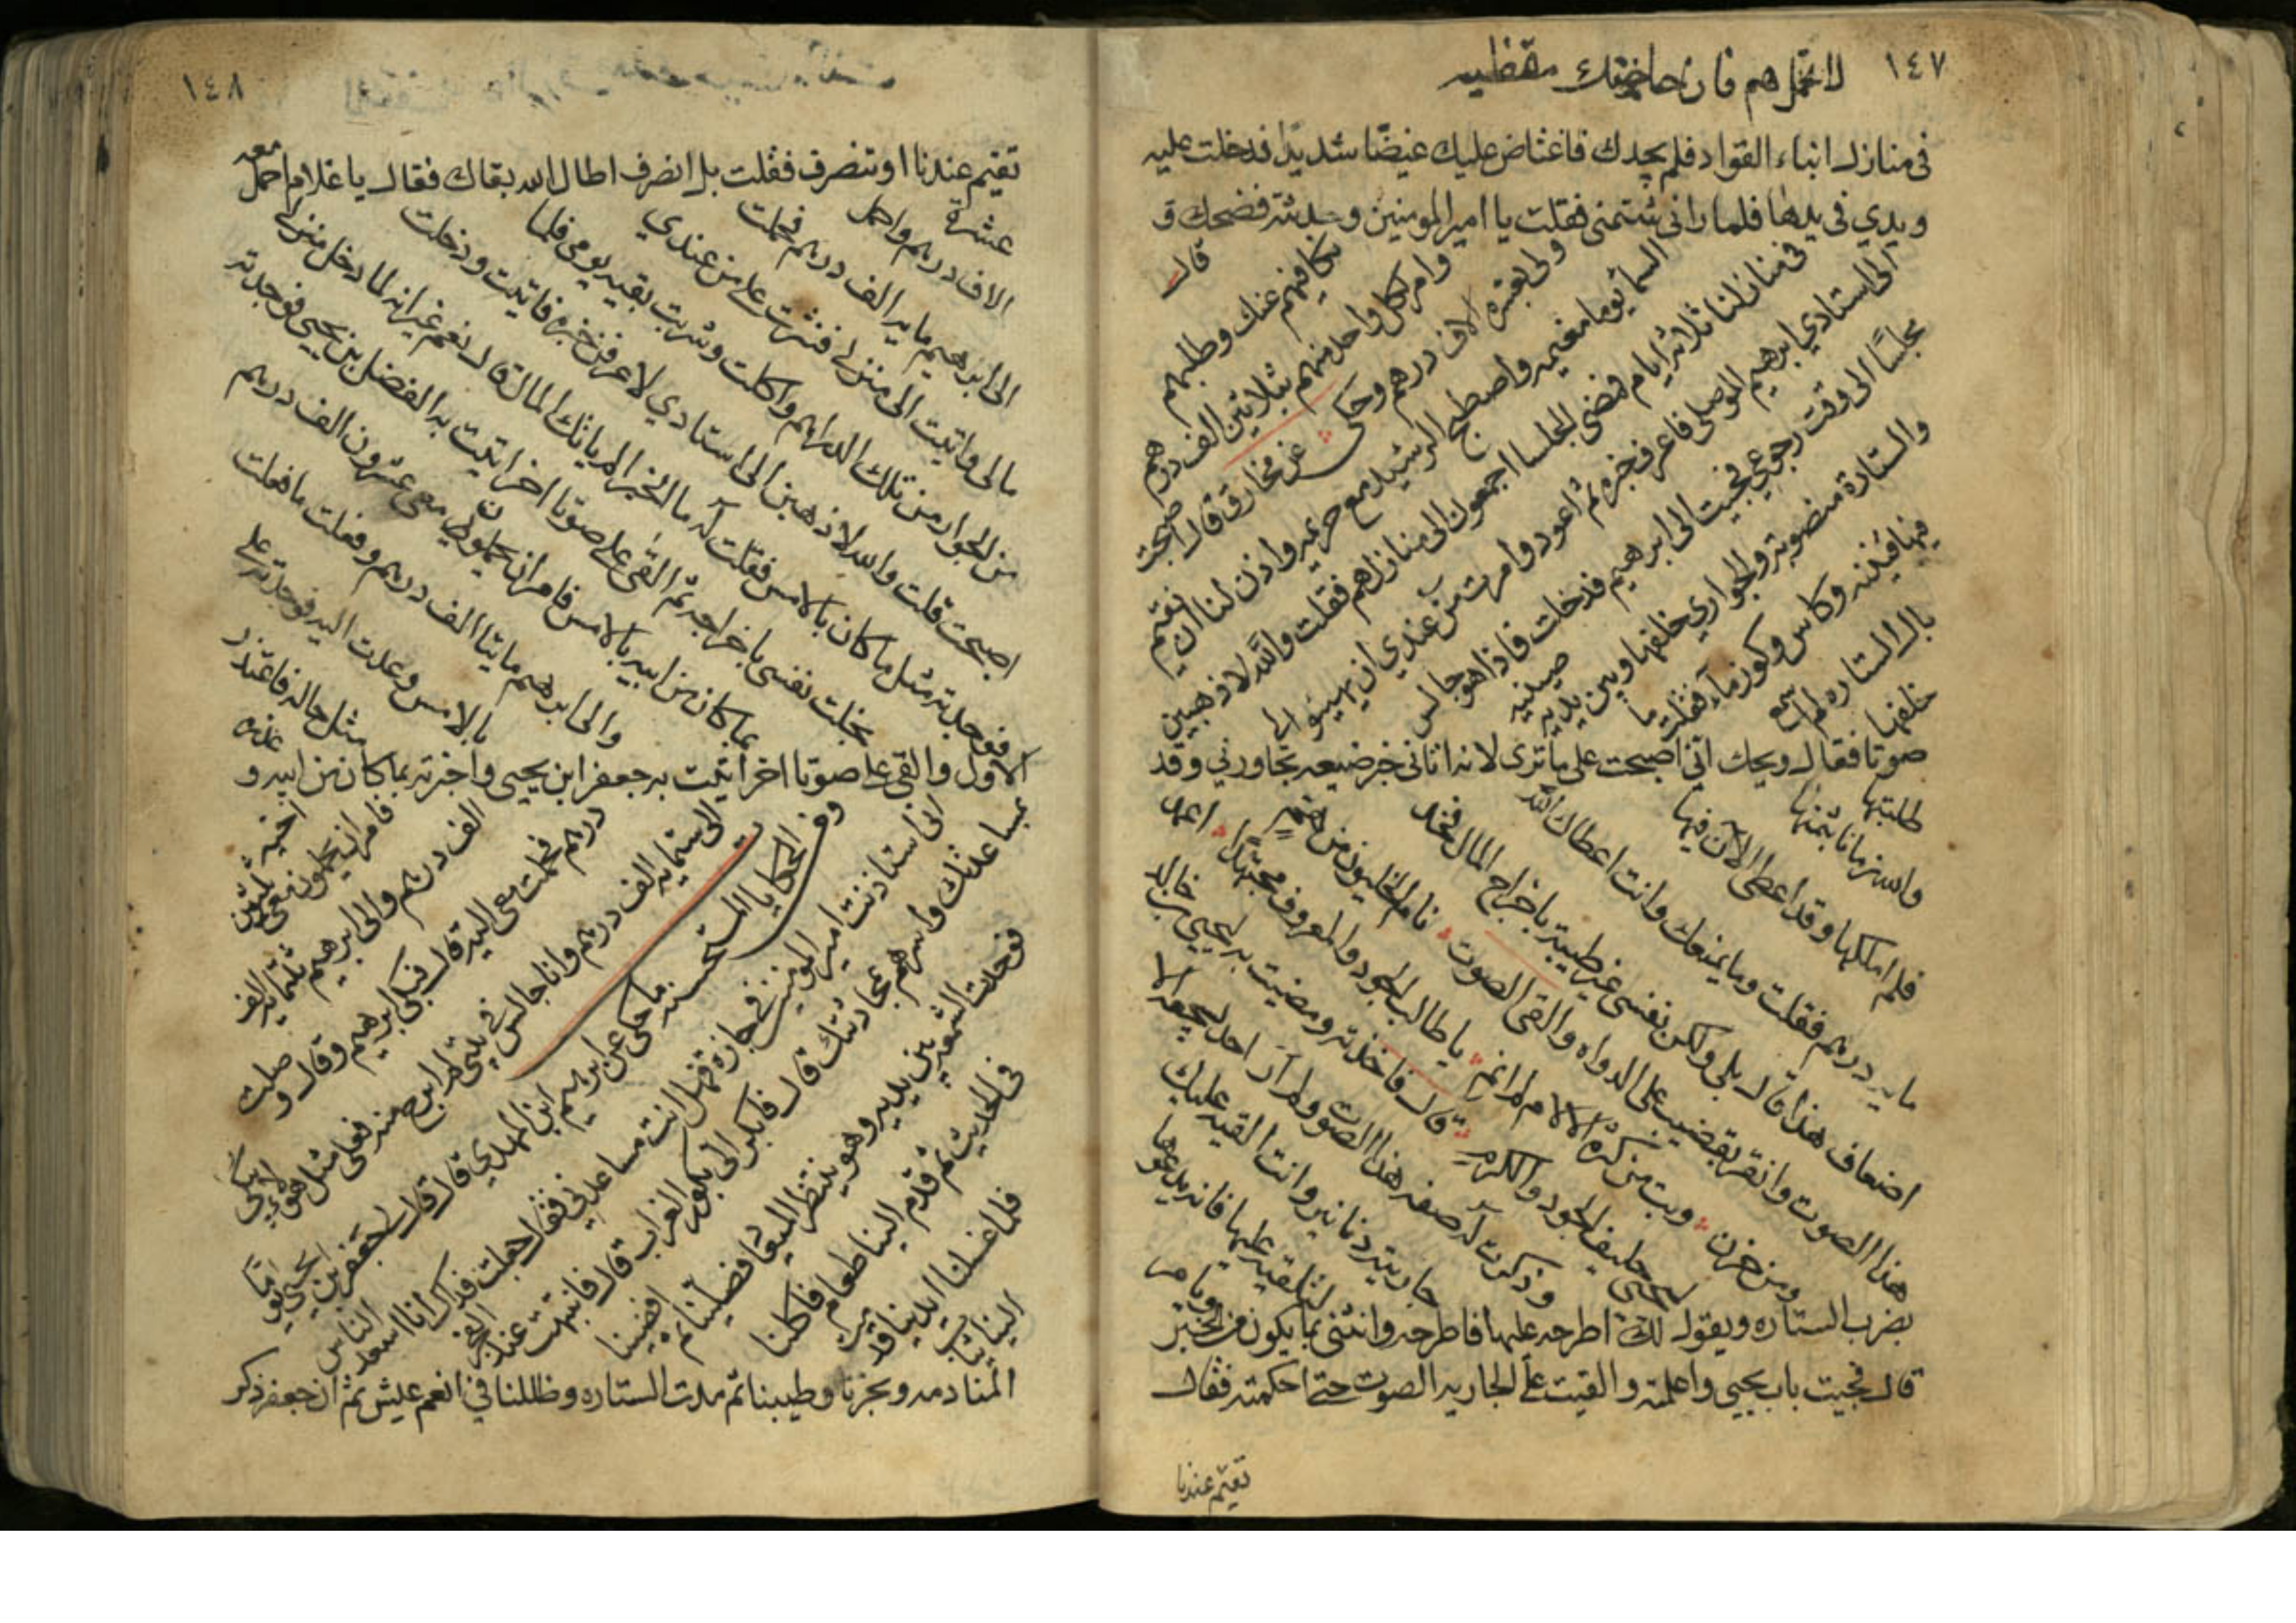 ١٤٧
لا تحمل هم فان حاجتك مقضيه
في منازل ابناء القواد فلم يجدك فاغتاض عليك غيضًا شديدًا فدخلت عليه
ويدي في يدها فلما راني شتمني فقلت يا امير المومنين وحدثته فضحك و
قال
بكافيهم عنك وطلبهم
وامر لكل واحد منهم بثلاثين الف درهم
ولى بعشرة الاف درهم وحكى عن مخارق قال اصبحت
السما يوما مغيمه واصطبح الرشيد مع حريمه واذن لنا ان نقيم
في منازلنا ثلاثة ايام فمضى الجلسا اجمعون الى منازلهم فقلت والله لاذهبن
الى استاذي ابرهيم الموصلي فاعرف خبره ثم اعود وامرت من عندي ان يهيئو الى
مجلسًا الى وقت رجوعي فجيت الى ابرهيم فدخلت فاذا هو جالس
والستارة منصوبة والجواري خلفها وبين يديه صينيه
فيها قنينه وكاس وكوز ماء فقلت ما
بال الستاره لم اسمع
خلفها
صوتا فقال ويحك اني اصبحت على ما ترى لانه اتاني خبر ضيعه تجاورني وقد
طلبتها
والله زمانا بثمنها
فلم املكها وقد اعطى الآن فيها
مايه درهم فقلت وما يمنعك وانت اعطاك الله
اضعاف هذا قال بلى ولكن نفسي غير طيبة باخراج المال فخذ
هذا الصوت وانقر بقضيب على الدواه والقى الصوت نام الخليون من هم
ومن حزن وبت من كثرة الالام لم انم يا طالب الجود والمعروف مجتهدًا اعمد
ليحيى حليف الجود والكرم قال فاخذته ومضيت به ليحيى خالد
وذكرت له صفه هذا الصوت ولم آر احد يسمعه الا
جاريته دنانير وانت القيه عليك
لتلقيه عليها فانه يدعوها
ويامر
بضرب الستاره ويقول لك اطرحه عليها فاطرحه وائتني بما يكون من الخبر
قال فجيت باب يحيى واعلمته والقيت على الجاريه الصوت حتى احكمته فقال
تقيم عندنا
١٤٨
تقيم عندنا او تنصرف فقلت بل انصرف اطال الله بقاك فقال يا غلام احمل معه
عشرة
الاف درهم واحمل
الى ابرهيم مايه الف درهم فحملت
مالى واتيت الى منزلى فنثرت على من عندي
من الجوار من تلك الدراهم واكلت وشربت بقيه يومي فلما
اصبحت قلت والله لاذهبن الى استاذي لاعرفن خبره فاتيت ودخلت
فوجدته مثل ما كان بالامس فقلت له ما الخبر الم ياتك المال قال نعم غير انه لما دخل منزلى
بخلت نفسي باخراجه ثم القى على صوتا اخر اتيت به الفضل بن يحيى فوجدته
بما كان من ابيه بالامس فامر ان يحملون معي عشرون الف درهم
والى ابرهيم مايتا الف درهم وفعلت ما فعلت
بالامس وعدت اليه فوجدته على
مثل حاله فاعتذر
عذره
الاول والقى على صوتا اخر اتيت به جعفر ابن يحيى واخبرته بما كان من ابيه و
اخيه
فامر ان يحملون معي ثلثون
الف درهم والى ابرهيم ثلثمايه الف
درهم فحملت معي اليه قال فبكى ابرهيم وقال وصلت
الى ستمايه الف درهم وانا جالس في بيتي لم ابرح منه فعلى مثل هولاء يبكى
ومن الحكايا المستحسنه ما حكى عن ابرهيم ابن المهدي قال قال لى جعفر بن يحيى يومًا
انى استاذنت امير المومنين في حاره فهل انت مساعدي فقلت جعلت فداك انا اسعد الناس
بمساعدتك واسرهم بمجاذبتك قال فابكر الى بكور الغراب قال فانتبهت عند الفجر
فوجدت الشمعه بين يديه وهو ينتظر الميعاد فصلينا ثم افضينا
في الحديث ثم قدم الينا طعام فاكلنا
فلما غسلنا ايدينا قدمت
الينا ثياب
المنادمه وبخرنا وطيبنا ثم مدت الستاره وظللنا في انعم عيش ثم ان جعفر ذكر